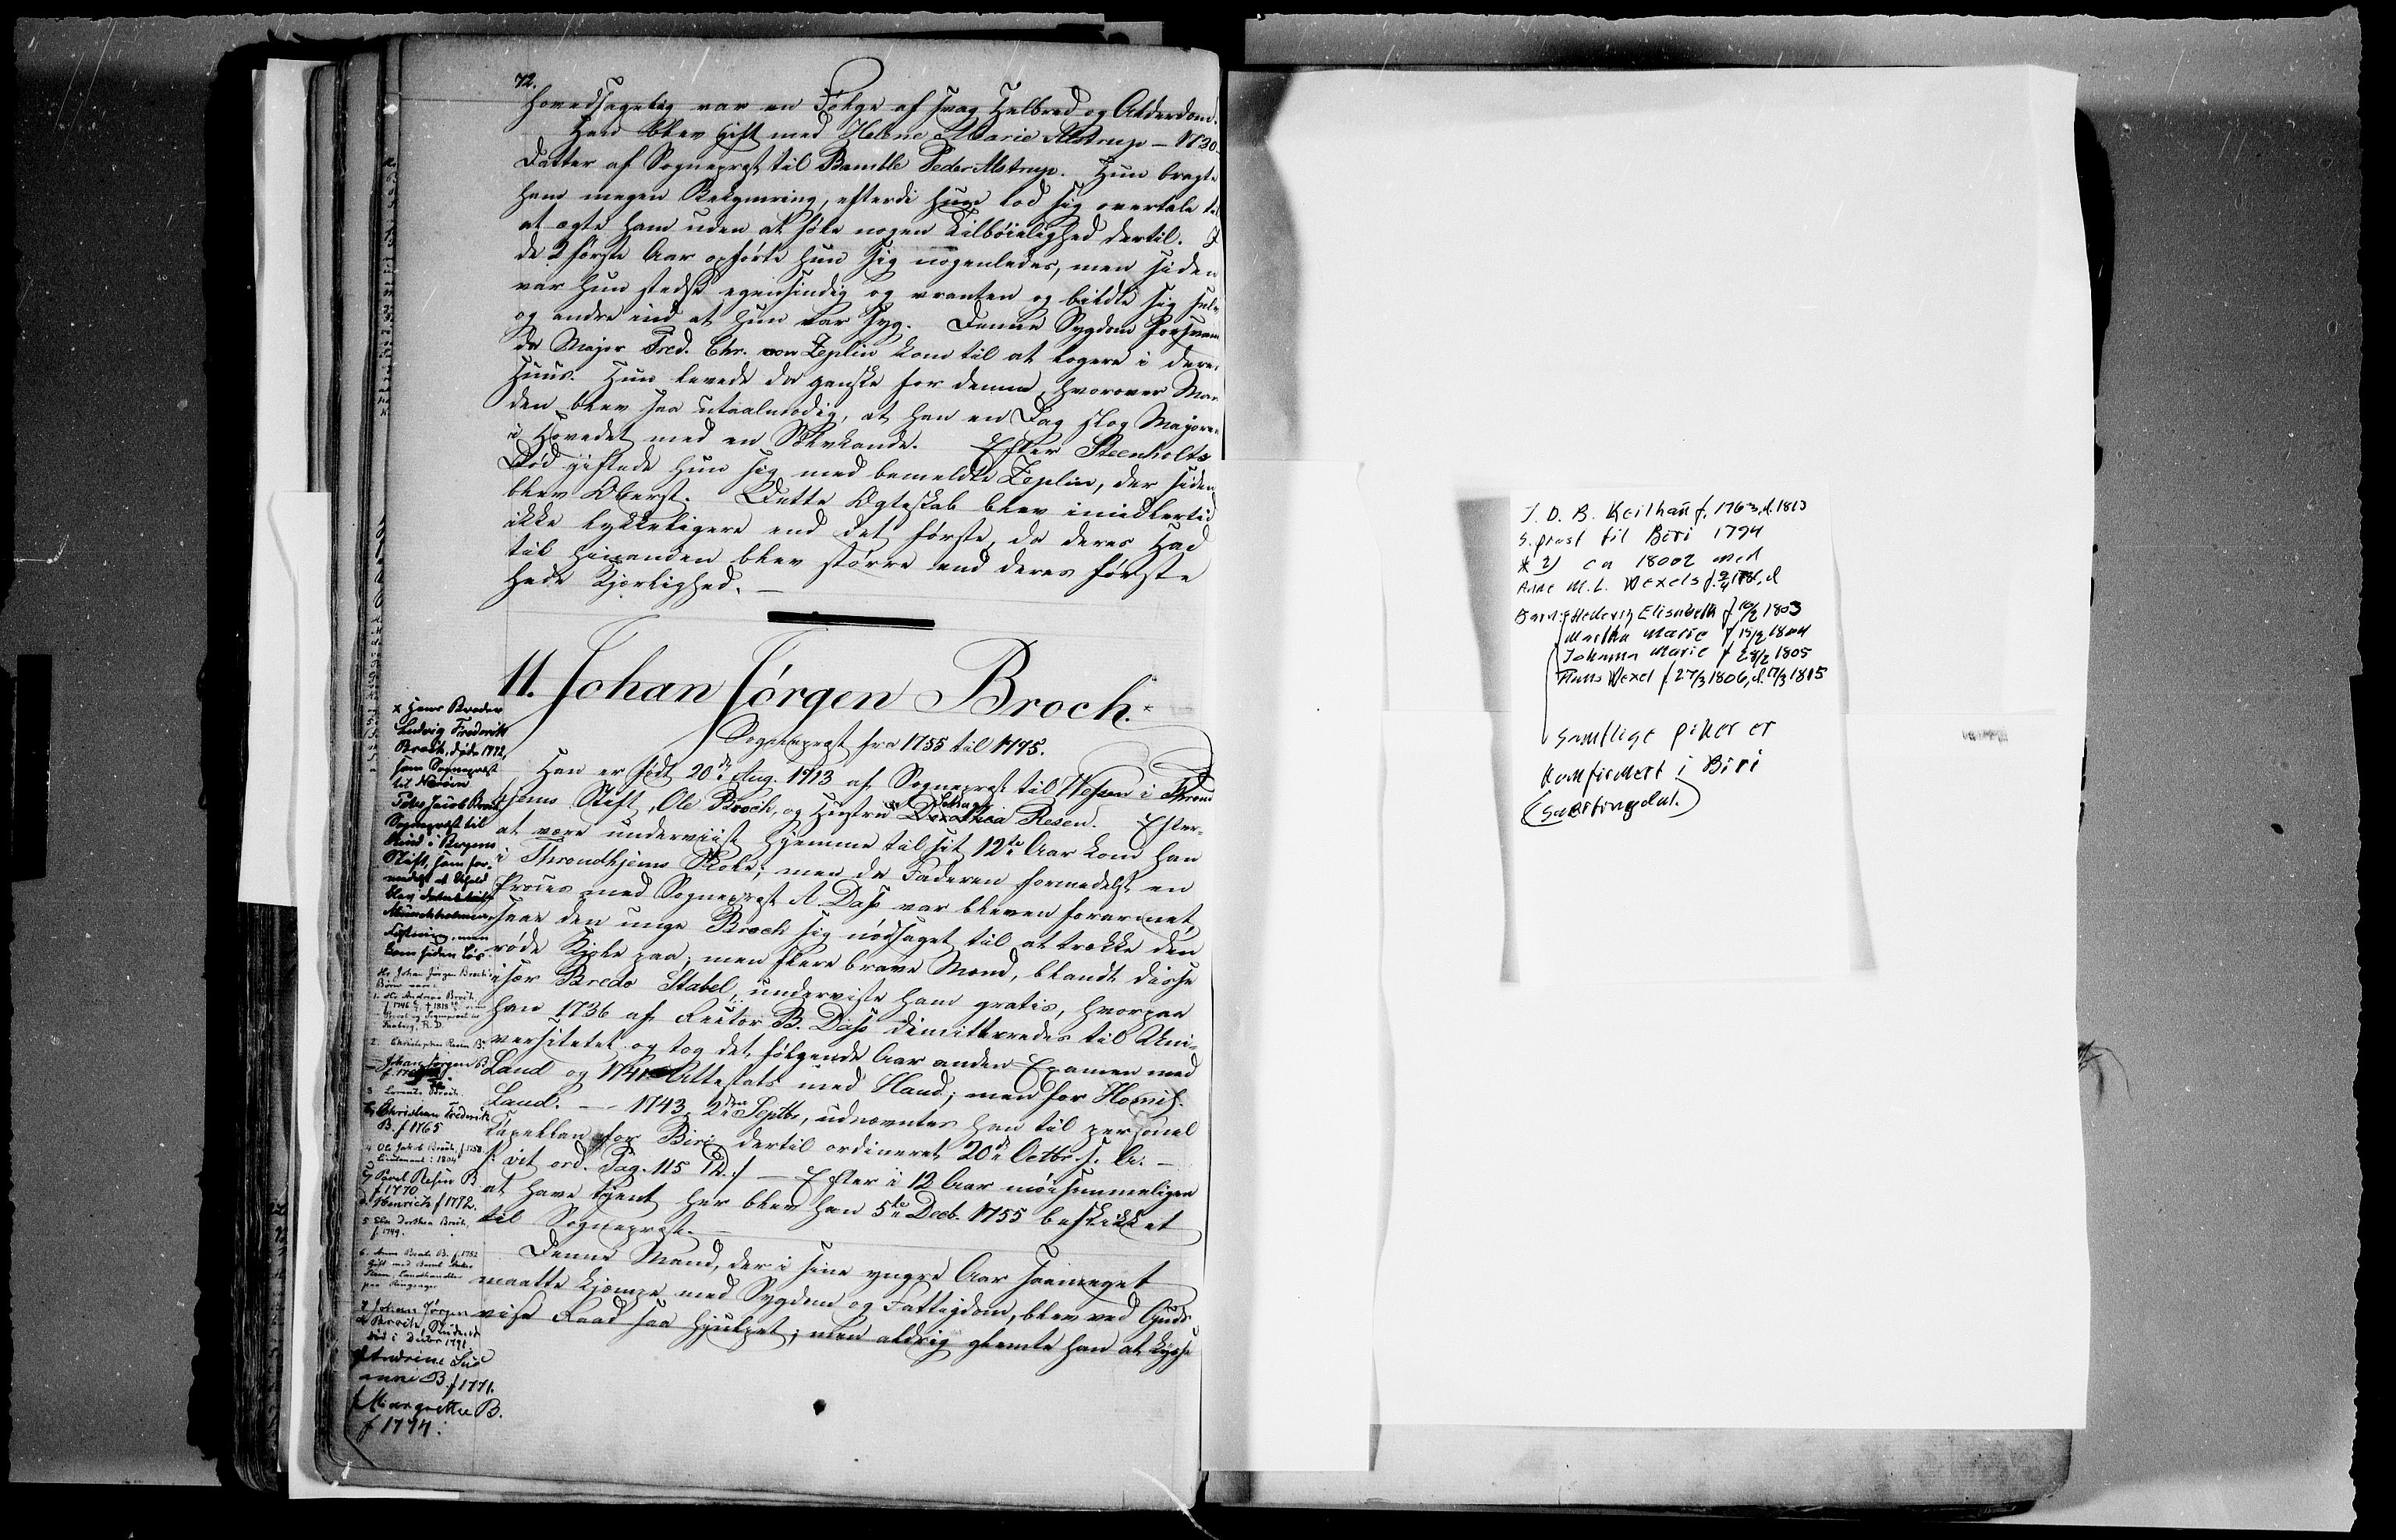 72.
hovedsagelig var en Følge af svag Helbred og Alderdom.
Han blev gift med Helene Marie Alstrup – 1730.
Datter af Sognepræst til Bamble Peder Alstrup. Hun bragte
ham megen Bekymring, efterdi hun lod sig overtale til
at ægte ham uden at føle nogen Tilbøielighed dertil. I
de 2 første Aar opførte hun sig nogenledes, men siden
var hun stedse egensindig og vranten og bildte sig selv
og andre ind at hun var syg. Denne Sygdom forsvandt
da Major Fred. Chr. von Zeplin kom til at logere i deres
Huus. Hun levede da ganske for denne, hvorover Man-
den blev saa utaalmodig, at han en Dag slog Majoren
i Hovedet med en Sølvkande. Efter Steenholts
Død giftede hun sig med bemeldte Zeplin, der siden
blev Oberst. Dette Ægteskab blev imidlertid
ikke lykkeligere end det første, da deres Had
til hinanden blev større end deres første
hede Kjærlighed. —
11. Johan Jörgen Broch.
Sognepræst fra 1755 til 1775.
Han er født 20de Aug. 1713 af Sognepræst til Wefsen i Thrond
hjems Stift, Ole Broch, og Hustru Dorothea Resen. Efter
at være underviist hjemme til sit 12te Aar kom han
i Throndhjems Skole; men da Faderen formedelst en
Proces med Sognepræst A. Dass var bleven forarmet,
saae den unge Broch sig nødsaget til at trække den
røde Kjole paa; men flere brave Mænd, blandt disse
især Bredo Stabel, underviste ham gratis, hvorpaa
han 1736 af Rector B. Dass dimitteredes til Uni-
versitetet og tog det følgende Aar anden Examen med
Laud og 1741 Attestats med Haud; men for Homil.
Laud. — 1743, 2den Septbr, udnævntes han til personel
Kapellan for Biri dertil ordineret 20de Octbr s. A. —
vit ord. Pag. 115 — Efter i 12 Aar møisommeligen
at have tjent her blev han 5te Decb. 1755 beskikket
til Sognepræst. —
Denne Mand, der i sine yngre Aar saameget
maatte kjæmpe med Sygdom og Fattigdom, blev ved Guds
vise Raad saa hjulpet; men aldrig glemte han at
x Hans Broder
Ludvig Frederik
Broch, døde 1772,
som Sognepræst
til Nærøen
Peder Jacob Broch
Sognepræst til
Kind i Bergens
Stift, som for-
medelst
blev
Munkholmens
Fæstning, men
kom siden løs.
Hr Johan Jørgen Broch's
Børn vare:
1. Hr Andreas Broch
f 1746 † 1818
Provst og Sognepræst til
Faaberg, R. D.
2. Christopher Resen B.
Johan Jørgen B.
3 Lorentz Broch
Christian Frederik
B. f 1765
4 Ole Jakob Broch, f 1758
Lieutenant : 1804
Povel Resen B
f 1770
Henrich f 1772.
5 Else Dorthea Broch,
f 1749.
6. Anne Beate B. f 1752
Gift med
Landhandler
paa Ringsager
7 Johan Jørgen
Broch, Student
død i Decbr 1791.
Andrine Sus
anne B. f 1771.
Margrethe B.
f 1774.
J. D. B. Keilhau f. 1763, d. 1813
S. prest til Biri 1794
* 2) ca 1802 med
Anne M. L. Wexels
Barn: Hedevig Elisabeth f 10/2 1803
Martha Marie f 15/2 1804
Johanna Marie f 28/2 1805
Hans Wexel f. 27/3 1806, d. 17/3 1815
samtlige piker er
konfirmert i Biri
(Snertingdal.)